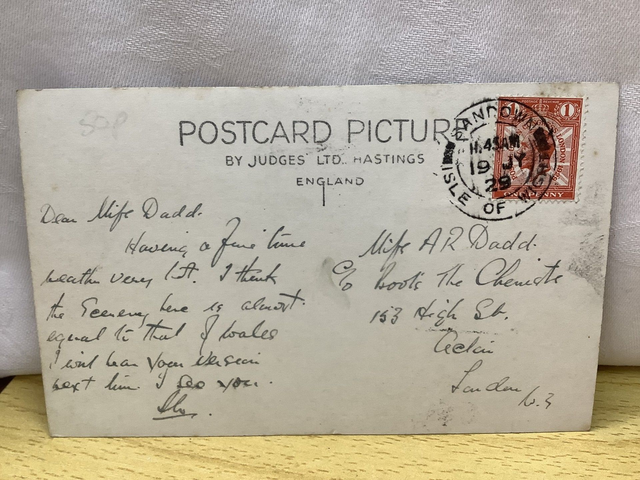 50p
POSTCARD PICTURE
BY JUDGES' LTD., HASTINGS
ENGLAND
SANDOWN
11.45AM
19 JY
29
ISLE OF
1 1
ONE PENNY
Dear Miss Dadd.
Having a fine time
weather very hot. I think
the Scenery here is almost
equal to that of Wales
I will hear your version
next time I see you.
Miss A R Dadd.
c/o Boots The Chemists
153 High St.
Acton
London
W.3